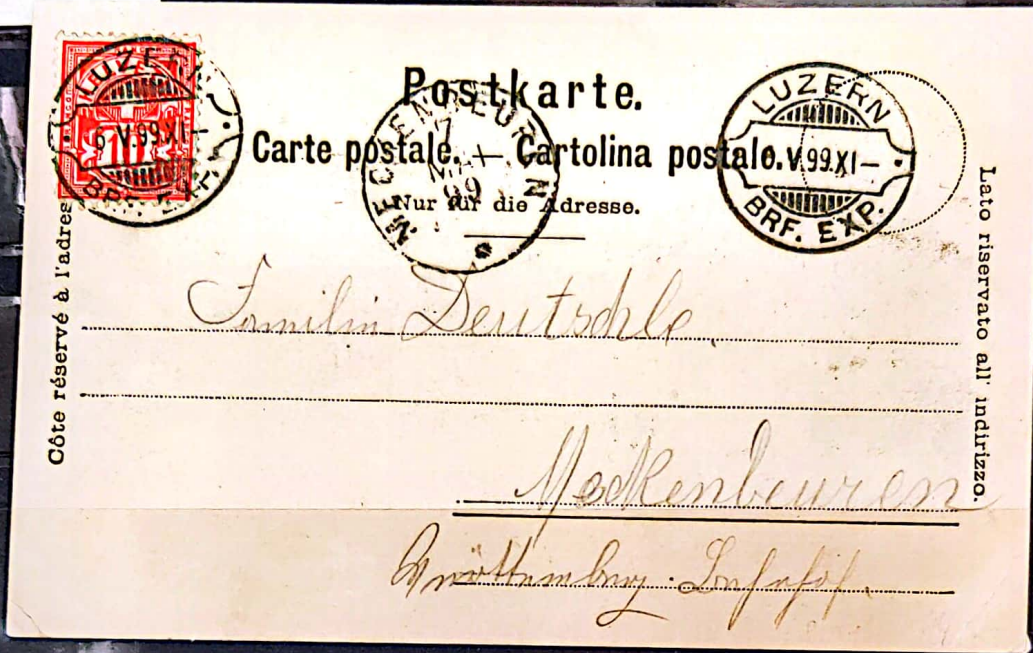 LUZERN
6.V.99.XI–
BRF. EXP.
10
Postkarte.
Carte postale. – Cartolina postale.
Nur für die Adresse.
MECKENBEUREN
7
MAI
99
LUZERN
6.V.99.XI–
BRF. EXP.
Côte réservé à l'adresse
Lato riservato all' indirizzo.
Familie Deutschle
Meckenbeuren
Württemberg.